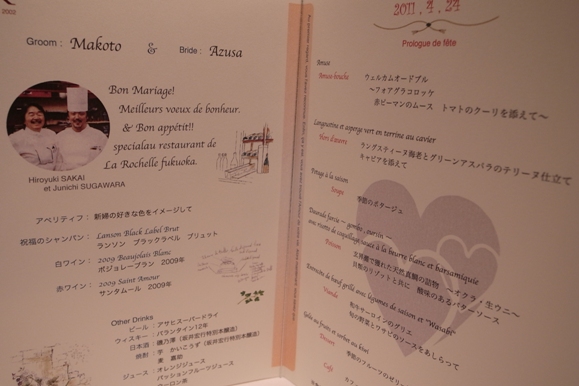 2002
Groom : Makoto & Bride : Azusa
Bon Mariage!
Meilleurs voeux de bonheur.
& Bon appétit!!
specialau restaurant de
La Rochelle fukuoka.
Hiroyuki SAKAI
et Junichi SUGAWARA
アペリティフ： 新婦の好きな色をイメージして
祝福のシャンパン： Lanson Black Label Brut
ランソン ブラックラベル ブリュット
白ワイン： 2009 Beaujolais Blanc
ボジョレーブラン 2009年
赤ワイン： 2009 Saint Amour
サンタムール 2009年
Other Drinks
ビール： アサヒスーパードライ
ウィスキー： バランタイン12年
日本酒： 磯乃澤（坂井宏行特別本醸造）
焼酎： 芋 かいこうず（坂井宏行特別本醸造）
麦
ジュース： オレンジジュース
パッションフルーツジュース
2011 . 4 . 24
Prologue de fête
Amuse
Amuse-bouche
ウェルカムオードブル
～フォアグラコロッケ
赤ピーマンのムース トマトのクーリを添えて～
Langoustine et asperge vert en terrine au caviar
Hors d'œuvre
ラングスティーヌ海老とグリーンアスパラのテリーヌ仕立て
キャビアを添えて
Potage à la saison
Soupe
季節のポタージュ
Daurade farcie ～ gombo . oursin ～
avec risotto de coquillage sauce à la beurre blanc et balsamique
Poisson
玄界灘で獲れた天然真鯛の詰物 ～オクラ/生ウニ～
貝類のリゾットと共に 酸味のあるバターソース
de bœuf grillé avec légumes de saison et "Wasabi"
Viande
和牛サーロインのグリエ
旬の野菜とワサビのソースをあしらって
Dessert
季節のフルーツの
Café